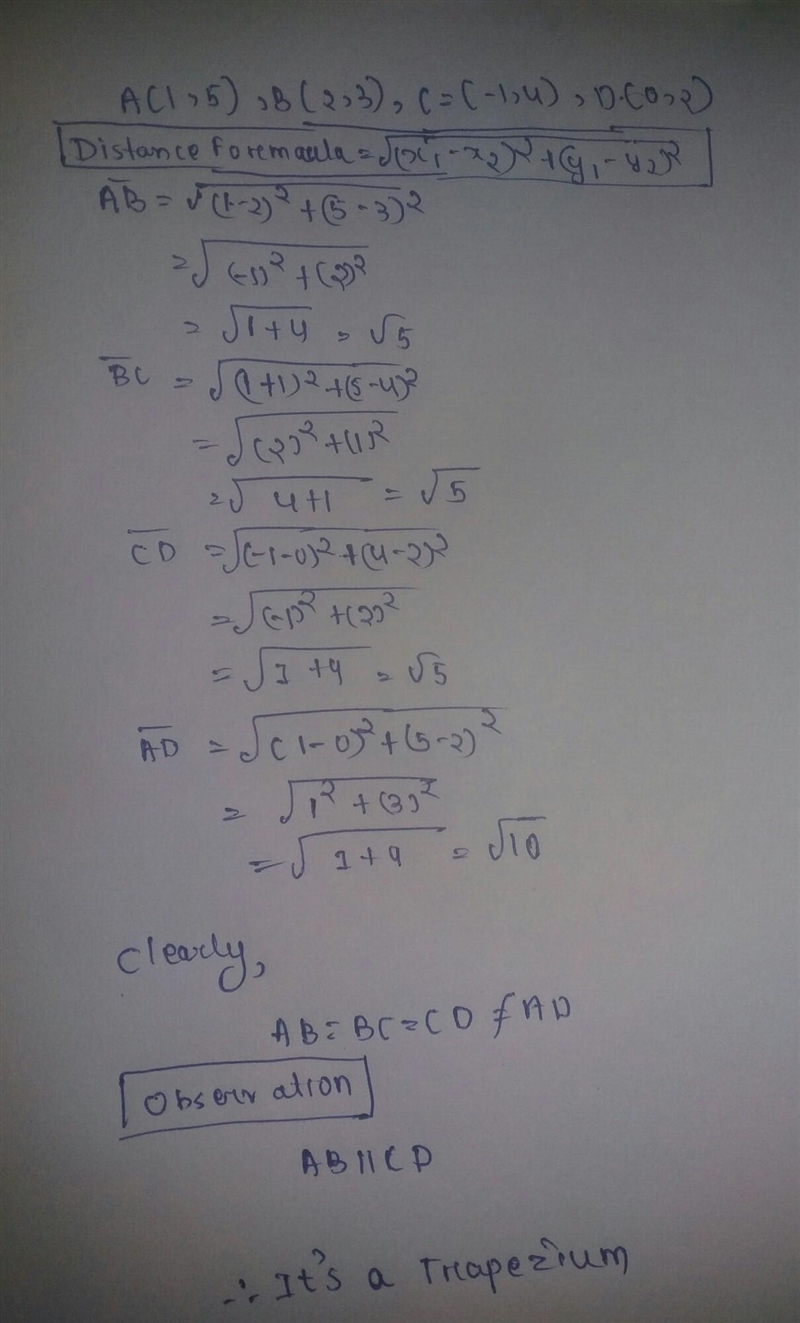 A(1,5), B(2,3), C=(-1,4), D.(0,2)
Distance foremaula = √(x₁-x₂)²+(y₁-y₂)²
AB = √(1-2)²+(5-3)²
= √(-1)²+(2)²
= √1+4 = √5
BC = √(1+1)²+(5-4)²
= √(2)²+(1)²
= √4+1 = √5
CD = √(-1-0)²+(4-2)²
= √(-1)²+(2)²
= √1+4 = √5
AD = √(1-0)²+(5-2)²
= √1²+(3)²
= √1+9 = √10
Clearly,
AB = BC = CD ≠ AD
Observation
AB || CD
∴ It's a Trapezium